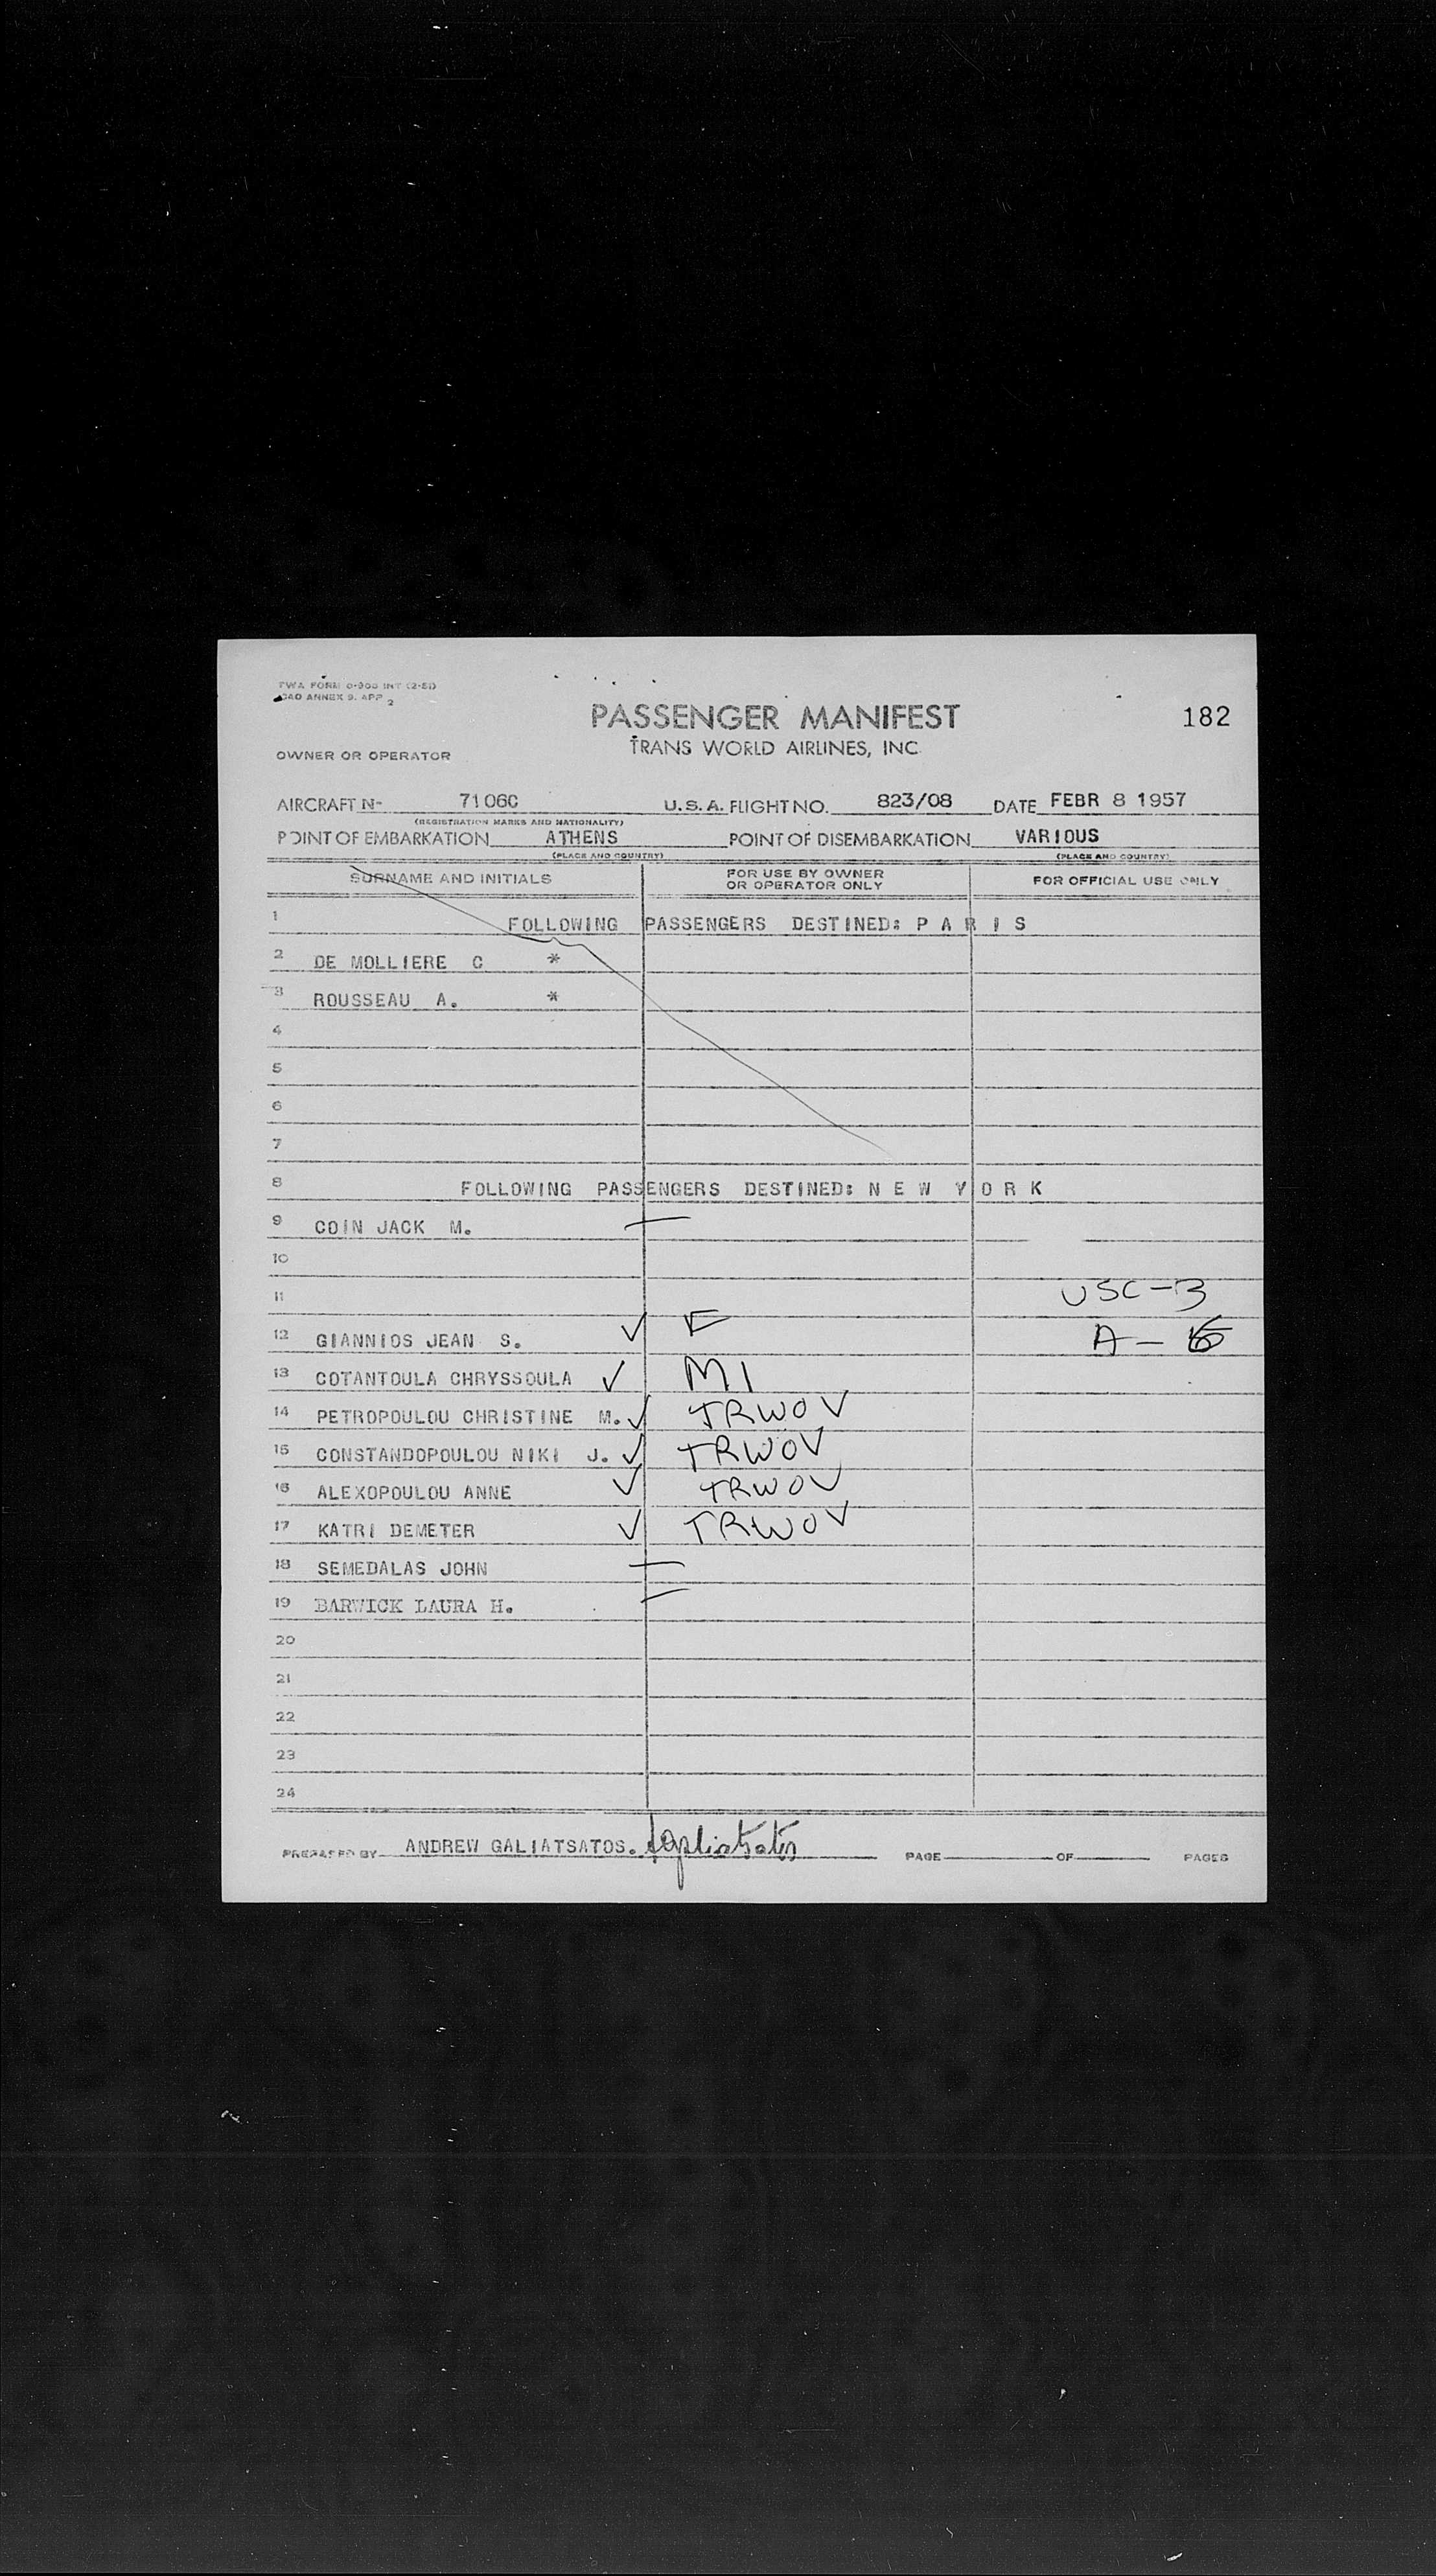 TWA FORM 0-900 INT (2-51)
ICAO ANNEX 9, APP 2
PASSENGER MANIFEST 182
TRANS WORLD AIRLINES, INC.
OWNER OR OPERATOR
AIRCRAFT N- 7106C U.S.A. FLIGHT NO. 823/08 DATE FEBR 8 1957
(REGISTRATION MARKS AND NATIONALITY)
POINT OF EMBARKATION ATHENS POINT OF DISEMBARKATION VARIOUS
(PLACE AND COUNTRY) (PLACE AND COUNTRY)
SURNAME AND INITIALS FOR USE BY OWNER OR OPERATOR ONLY FOR OFFICIAL USE ONLY
1 FOLLOWING PASSENGERS DESTINED: P A R I S
2 DE MOLLIERE C *
3 ROUSSEAU A. *
4
5
6
7
8 FOLLOWING PASSENGERS DESTINED: N E W Y O R K
9 COIN JACK M. —
10
11 USC-3
12 GIANNIOS JEAN S. ✓ F A-6
13 COTANTOULA CHRYSSOULA ✓ M1
14 PETROPOULOU CHRISTINE M. ✓ TRWOV
15 CONSTANDOPOULOU NIKI J. ✓ TRWOV
16 ALEXOPOULOU ANNE ✓ TRWOV
17 KATRI DEMETER ✓ TRWOV
18 SEMEDALAS JOHN —
19 BARWICK LAURA H. —
20
21
22
23
24
PREPARED BY ANDREW GALIATSATOS. AGaliatsatos PAGE OF PAGES